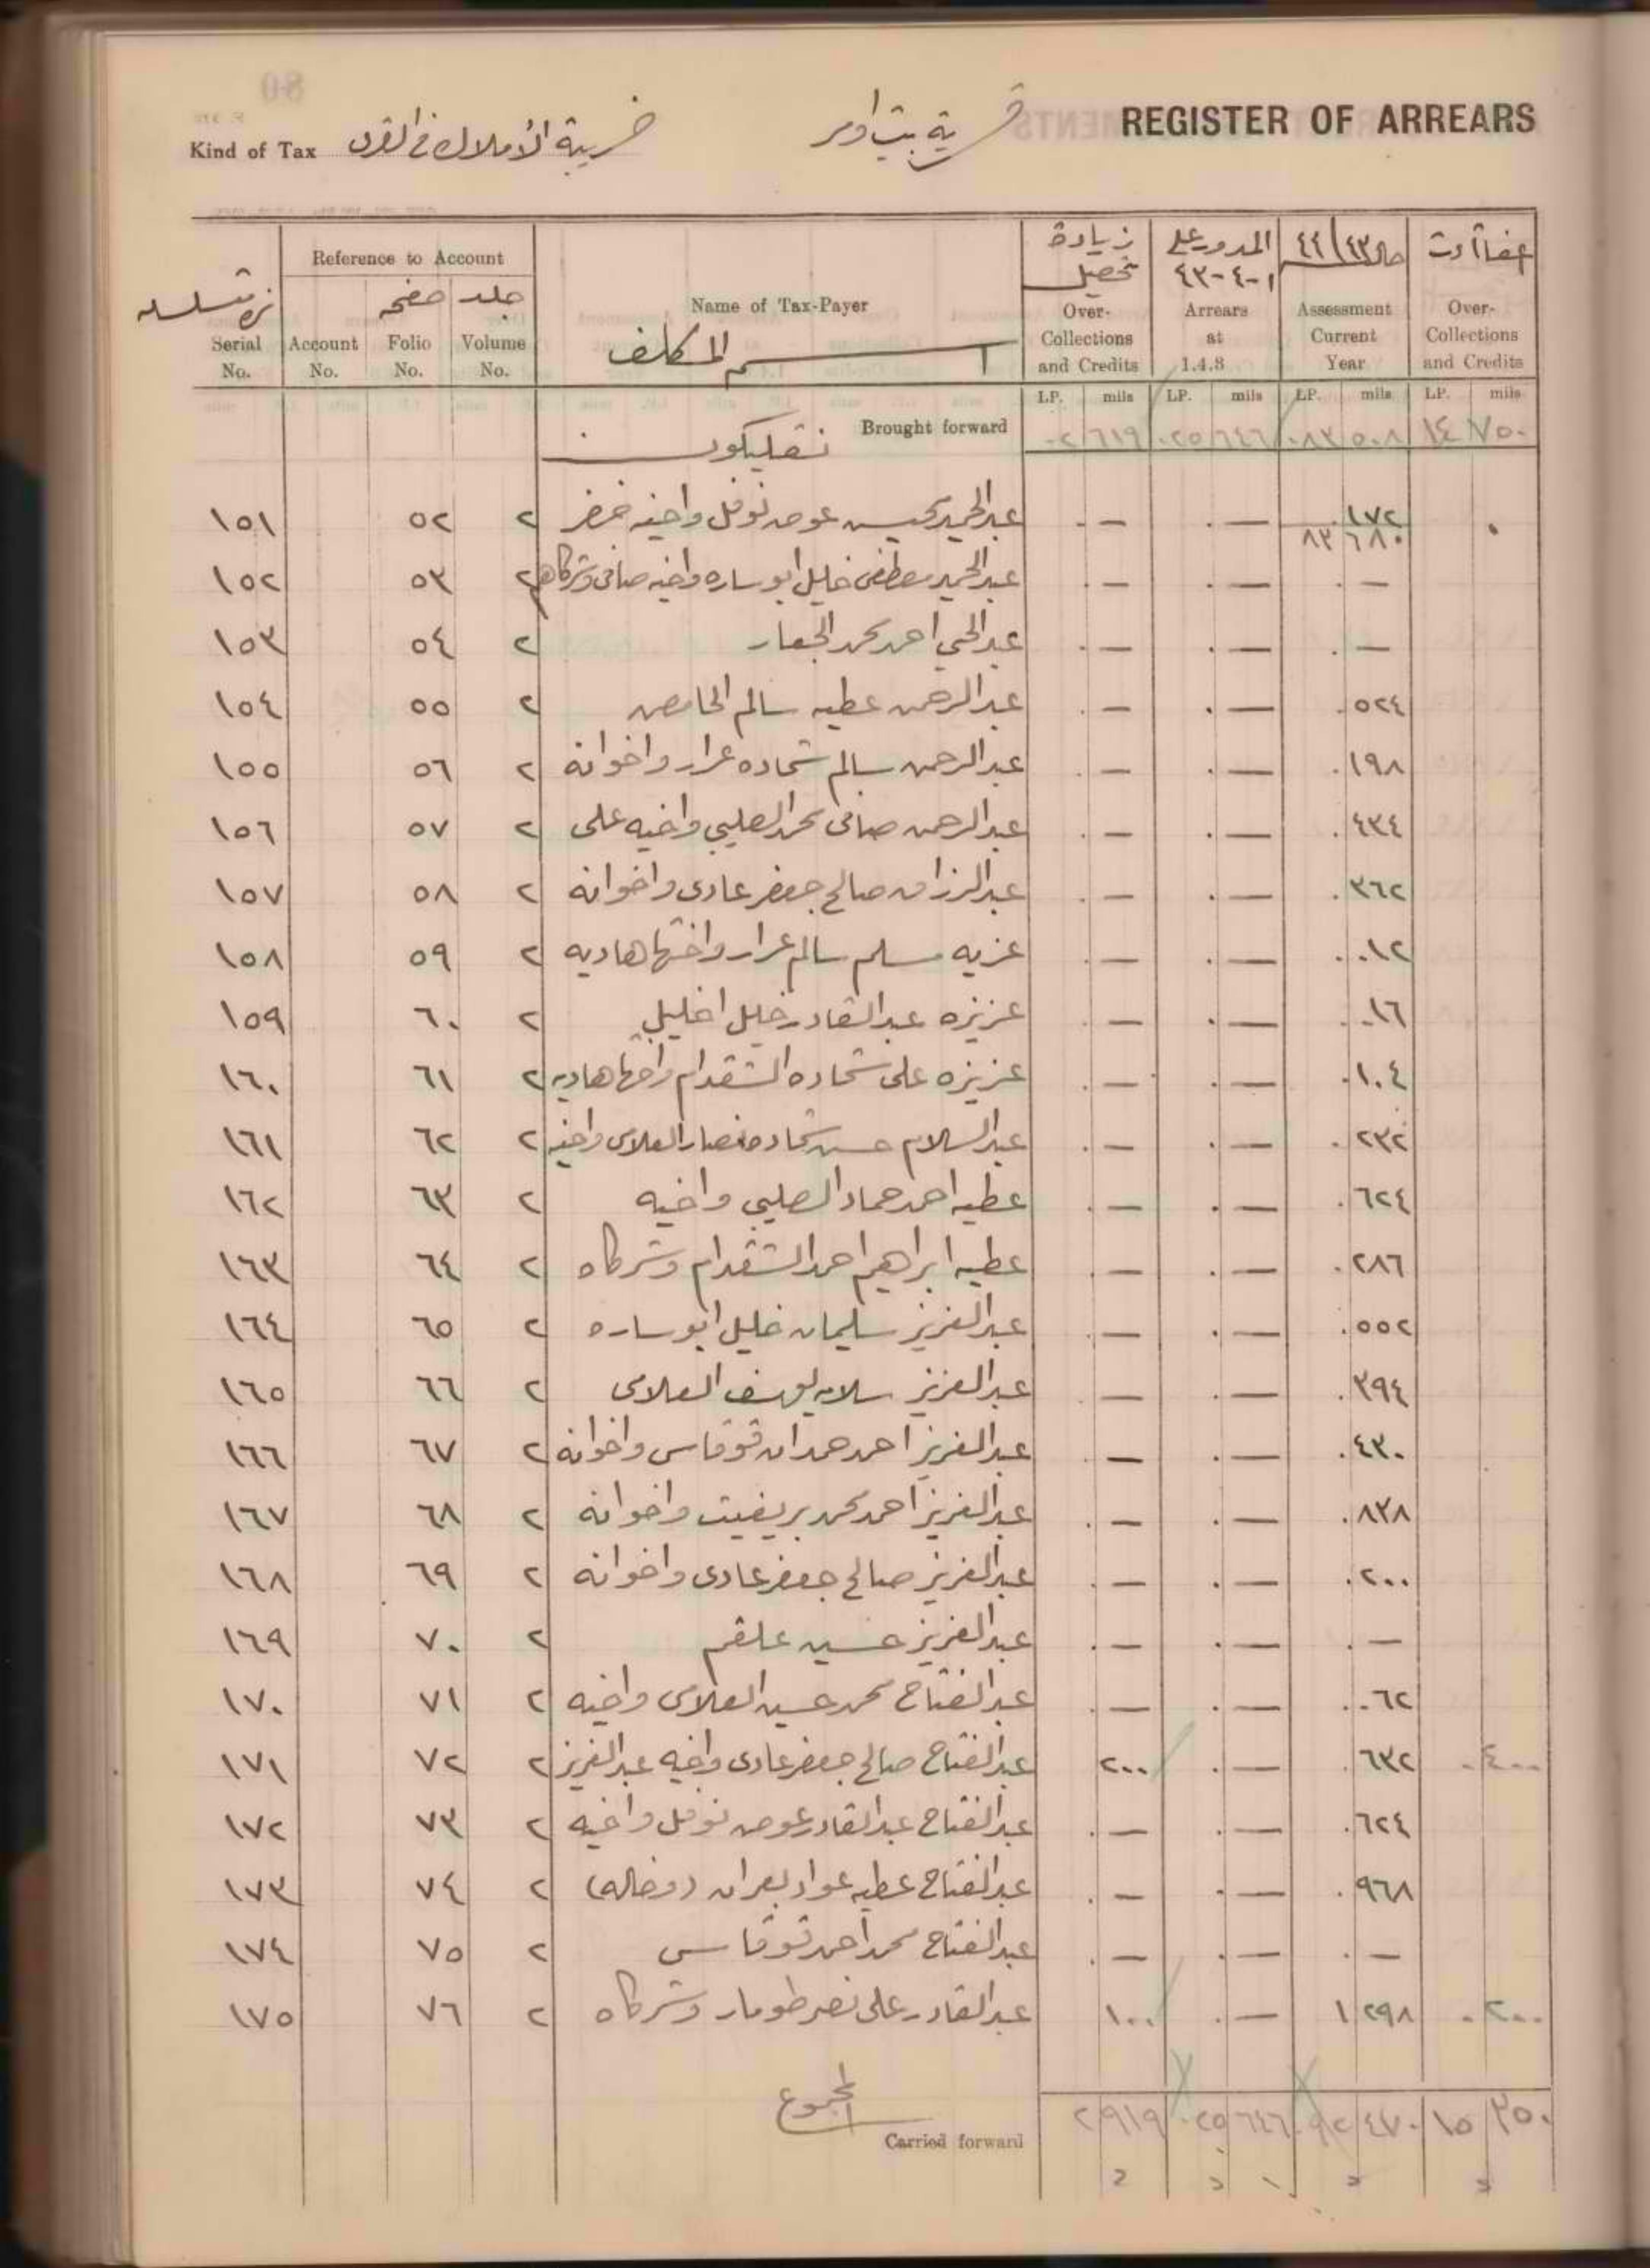 REGISTER OF ARREARS
قرية بيت امر
Kind of Tax ضريبة الأملاك في القرى
نمرة متسلسلة Serial No.
Reference to Account
Account No.
صفحه Folio No.
جلد Volume No.
Name of Tax-Payer
اسم المكلف
زيادة تحصيل Over-Collections and Credits
المدور على ١-٤-٤٣ Arrears at 1.4.3
حال ٤٣/٤٤ Assessment Current Year
اعفاآت Over-Collections and Credits
LP. mils LP. mils LP. mils LP. mils
Brought forward ٠٢ ٦١٩ ٠٢٥ ٦٤٦ ٠٨٣ ٥٠٨ ١٤ ٧٥٠
١٥١ ٥٢ ٢ عبد الحميد حسن عوض نوفل واخيه خضر . — . — . ١٧٢
٨٣ ٦٨٠
١٥٢ ٥٣ ٢ عبد الحميد مصطفى خليل ابو ساره واخيه صافى وشركاهم . — . — . —
١٥٣ ٥٤ ٢ عبد الحي احمد محمد الجعار . — . — . —
١٥٤ ٥٥ ٢ عبد الرحمن عطيه سالم الخامص . — . — . ٥٢٤
١٥٥ ٥٦ ٢ عبد الرحمن سالم شحاده عرار واخوانه . — . — . ١٩٨
١٥٦ ٥٧ ٢ عبد الرحمن صافى محمد الصليبي واخيه على . — . — . ٤٣٤
١٥٧ ٥٨ ٢ عبد الرزاق صالح جعفر عادى واخوانه . — . — . ٣٦٢
١٥٨ ٥٩ ٢ عزيه مسلم سالم عرار واختها هاديه . — . — . ٠١٢
١٥٩ ٦٠ ٢ عزيزه عبد القادر خليل اخليل . — . — . ٠١٦
١٦٠ ٦١ ٢ عزيزه على شحاده الشقدام واختها هاديه . — . — . ١٠٤
١٦١ ٦٢ ٢ عبد السلام حسن شحاده نصار العلامى واخيه . — . — . ٢٣٢
١٦٢ ٦٣ ٢ عطيه احمد حماد الصليبي واخيه . — . — . ٦٢٤
١٦٣ ٦٤ ٢ عطيه ابراهيم احمد الشقدام وشركاه . — . — . ٢٨٦
١٦٤ ٦٥ ٢ عبد العزيز سليمان خليل ابو ساره . — . — . ٥٥٢
١٦٥ ٦٦ ٢ عبد العزيز سلامه يوسف العلامى . — . — . ٣٩٤
١٦٦ ٦٧ ٢ عبد العزيز احمد حمدان قوقاس واخوانه . — . — . ٤٣٠
١٦٧ ٦٨ ٢ عبد العزيز احمد محمد بريغيت واخوانه . — . — . ٨٣٨
١٦٨ ٦٩ ٢ عبد العزيز صالح جعفر عادى واخوانه . — . — . ٢٠٠
١٦٩ ٧٠ ٢ عبد العزيز حسين علقم . — . — . —
١٧٠ ٧١ ٢ عبد الفتاح محمد حسين العلامى واخيه . — . — . ٠٦٢
١٧١ ٧٢ ٢ عبد الفتاح صالح جعفر عادى واخيه عبد العزيز ٢٠٠ . — . ٦٣٢ . ٤٠٠
١٧٢ ٧٣ ٢ عبد الفتاح عبد القادر عوض نوفل واخيه . — . — . ٦٢٤
١٧٣ ٧٤ ٢ عبد الفتاح عطيه عواد بعران . — . — . ٩٦٨
١٧٤ ٧٥ ٢ عبد الفتاح محمد احمد قوقاس . — . — . —
١٧٥ ٧٦ ٢ عبد القادر على نصر طومار وشركاه ١٠٠ . — ١ ٢٩٨ . ٢٠٠
المجموع
Carried forward ٢ ٩١٩ ٠٢٥ ٦٤٦ ٠٩٢ ٤٧٠ ١٥ ٣٥٠